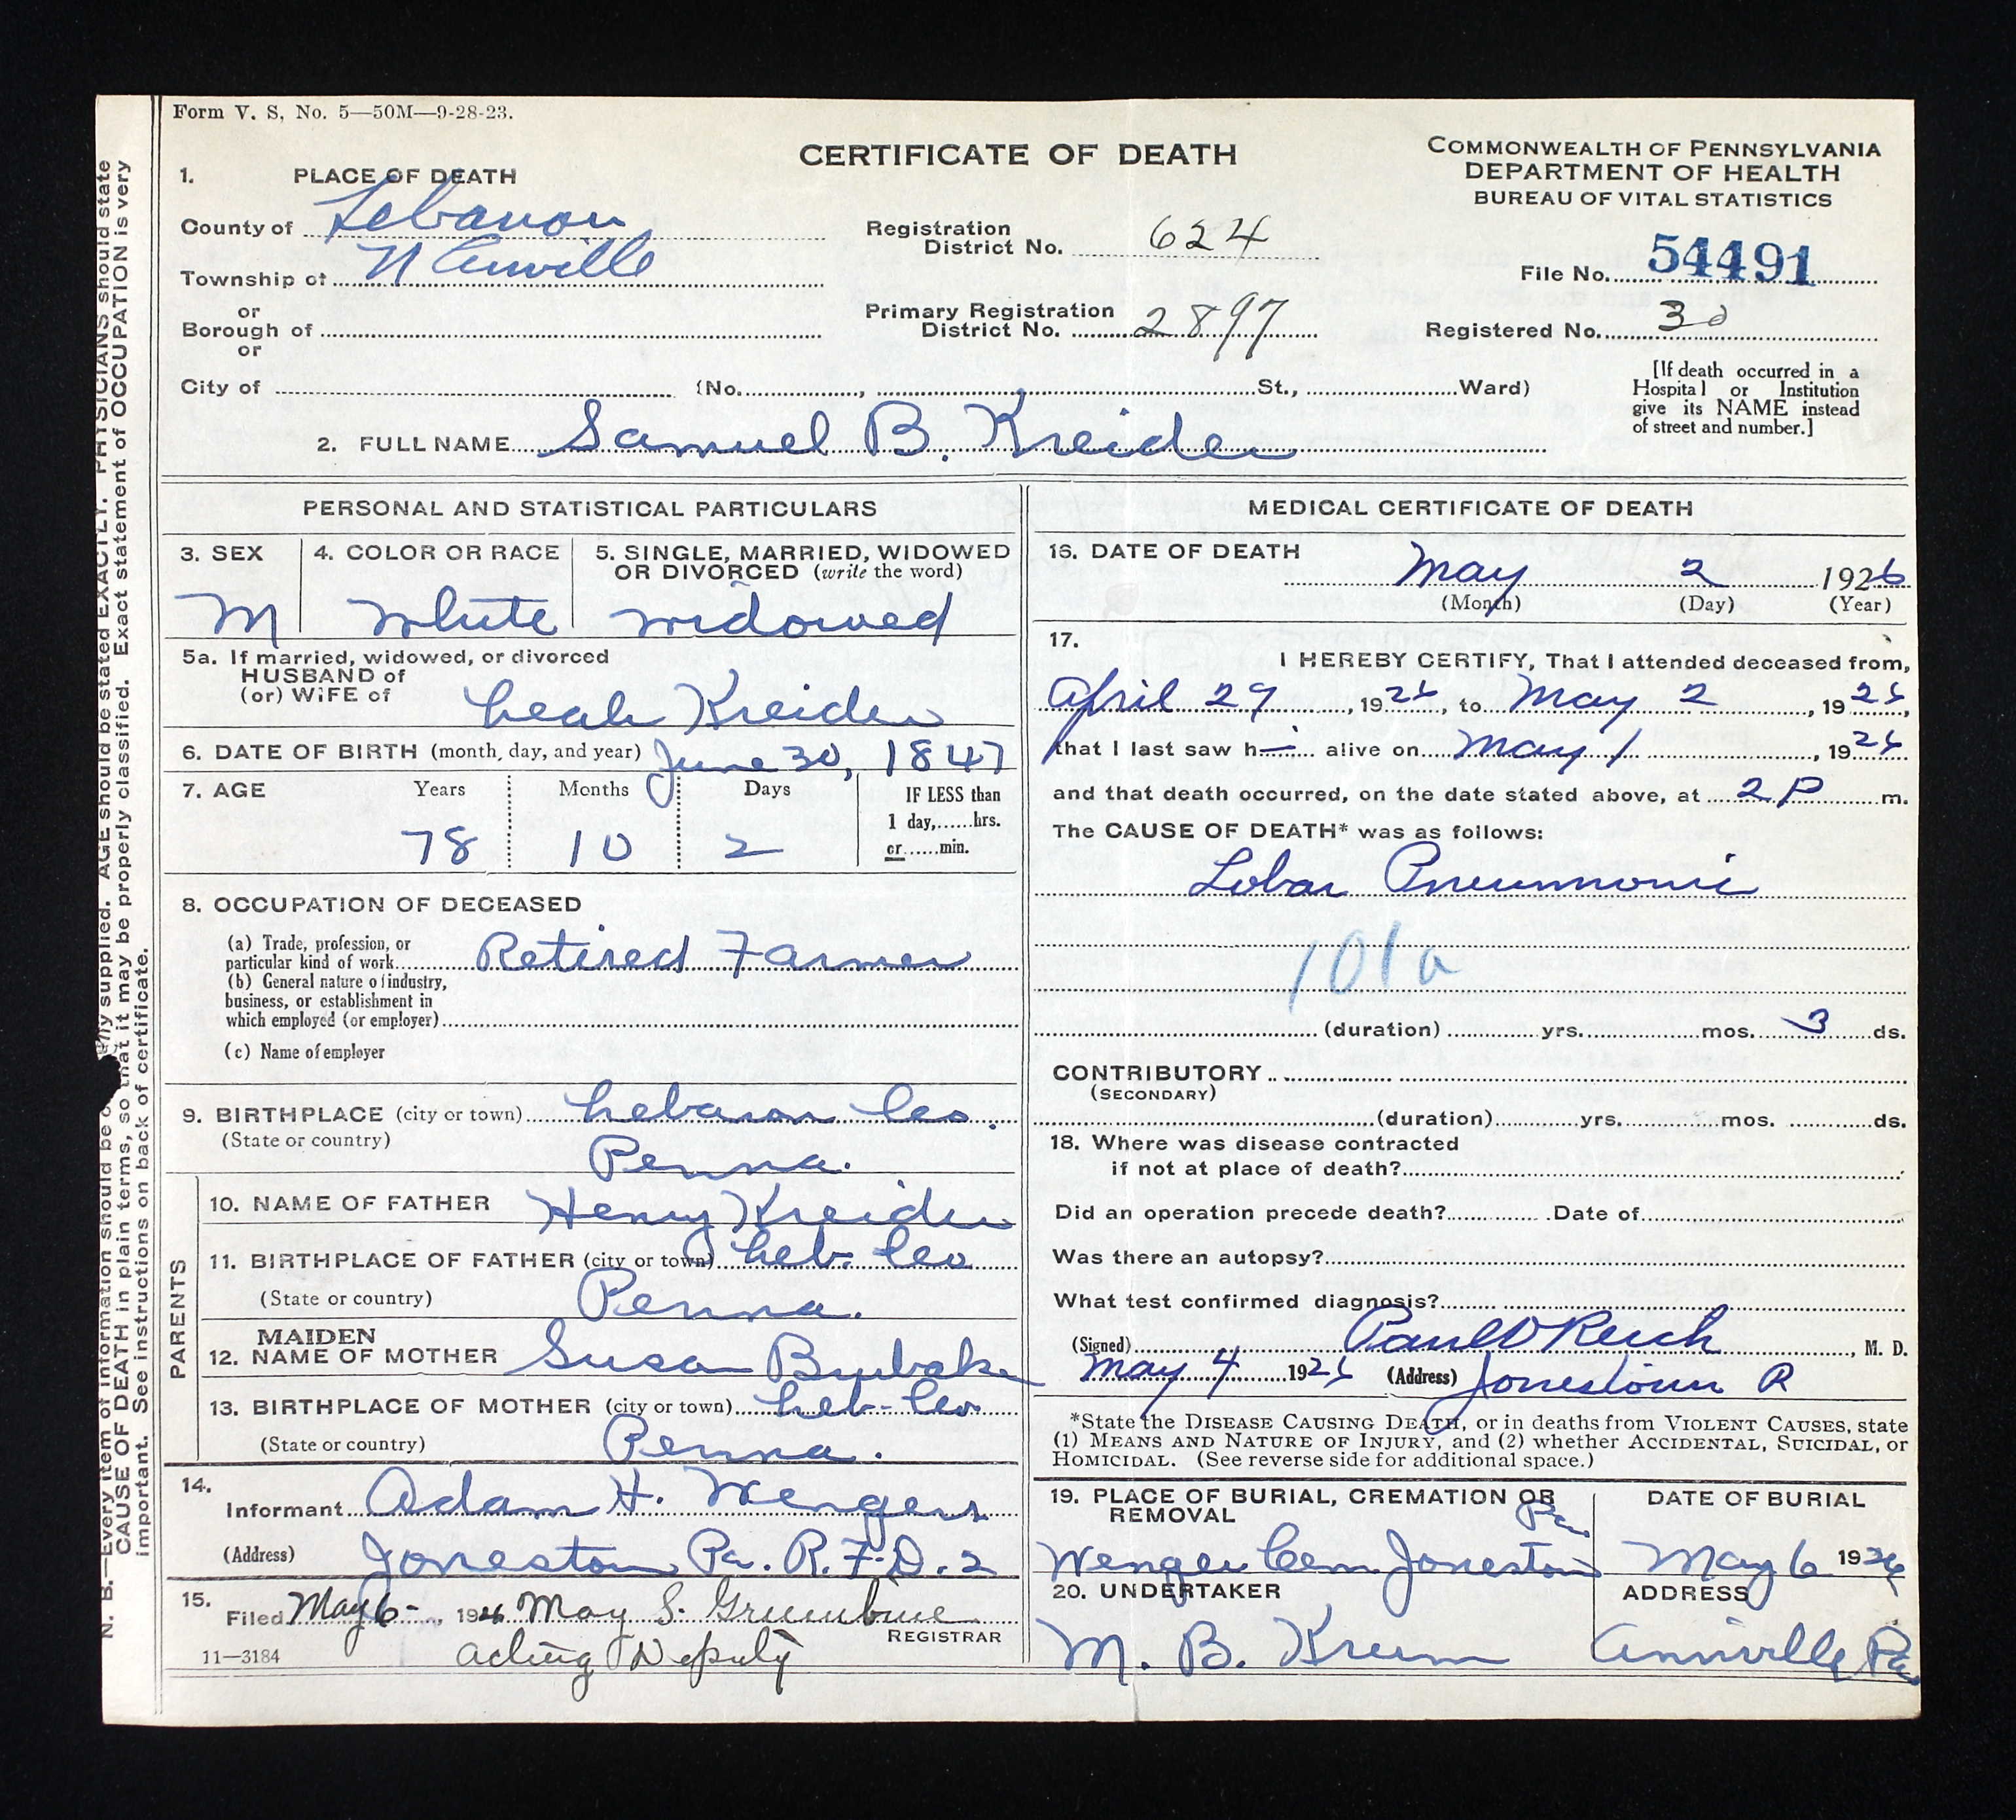 Form V. S. No. 5—50M—9-28-23.
CERTIFICATE OF DEATH
COMMONWEALTH OF PENNSYLVANIA
DEPARTMENT OF HEALTH
BUREAU OF VITAL STATISTICS
1. PLACE OF DEATH
County of Lebanon
Township of N Annville
or
Borough of
or
City of (No. , St., Ward)
Registration District No. 624
Primary Registration District No. 2897
File No. 54491
Registered No. 30
[If death occurred in a Hospital or Institution give its NAME instead of street and number.]
2. FULL NAME Samuel B. Kreider
PERSONAL AND STATISTICAL PARTICULARS
3. SEX
M
4. COLOR OR RACE
White
5. SINGLE, MARRIED, WIDOWED OR DIVORCED (write the word)
widowed
5a. If married, widowed, or divorced
HUSBAND of
(or) WIFE of Leah Kreider
6. DATE OF BIRTH (month, day, and year) June 30, 1847
7. AGE Years Months Days IF LESS than
1 day,......hrs.
or......min.
78 10 2
8. OCCUPATION OF DECEASED
(a) Trade, profession, or
particular kind of work Retired Farmer
(b) General nature of industry,
business, or establishment in
which employed (or employer)
(c) Name of employer
9. BIRTHPLACE (city or town) Lebanon Co.
(State or country) Penna.
PARENTS
10. NAME OF FATHER Henry Kreider
11. BIRTHPLACE OF FATHER (city or town) Leb. Co
(State or country) Penna.
12. MAIDEN NAME OF MOTHER Susan Brubaker
13. BIRTHPLACE OF MOTHER (city or town) Leb-Co.
(State or country) Penna.
14.
Informant Adam H. Wengert
(Address) Jonestown Pa. R.F.D.2
15.
Filed May 6-, 1926 May S. Grumbine
REGISTRAR
acting Deputy
11—3184
MEDICAL CERTIFICATE OF DEATH
16. DATE OF DEATH
May 2 1926
(Month) (Day) (Year)
17.
I HEREBY CERTIFY, That I attended deceased from,
April 29, 1926, to May 2, 1926,
that I last saw h— alive on May 1, 1926
and that death occurred, on the date stated above, at 2 P m.
The CAUSE OF DEATH* was as follows:
Lobar Pneumonia
101a
(duration) yrs. mos. 3 ds.
CONTRIBUTORY
(SECONDARY)
(duration) yrs. mos. ds.
18. Where was disease contracted
if not at place of death?
Did an operation precede death? Date of
Was there an autopsy?
What test confirmed diagnosis?
(Signed) Paul D Reich, M. D.
May 4 1926 (Address) Jonestown R
*State the DISEASE CAUSING DEATH, or in deaths from VIOLENT CAUSES, state
(1) MEANS AND NATURE OF INJURY, and (2) whether ACCIDENTAL, SUICIDAL, or
HOMICIDAL. (See reverse side for additional space.)
19. PLACE OF BURIAL, CREMATION OR REMOVAL
Wenger Cem Jonestown Pa.
DATE OF BURIAL
May 6 1926
20. UNDERTAKER
M. B. Krum
ADDRESS
Annville Pa
N. B.—Every item of information should be supplied. AGE should be stated EXACTLY. PHYSICIANS should state
CAUSE OF DEATH in plain terms, so that it may be properly classified. Exact statement of OCCUPATION is very
important. See instructions on back of certificate.